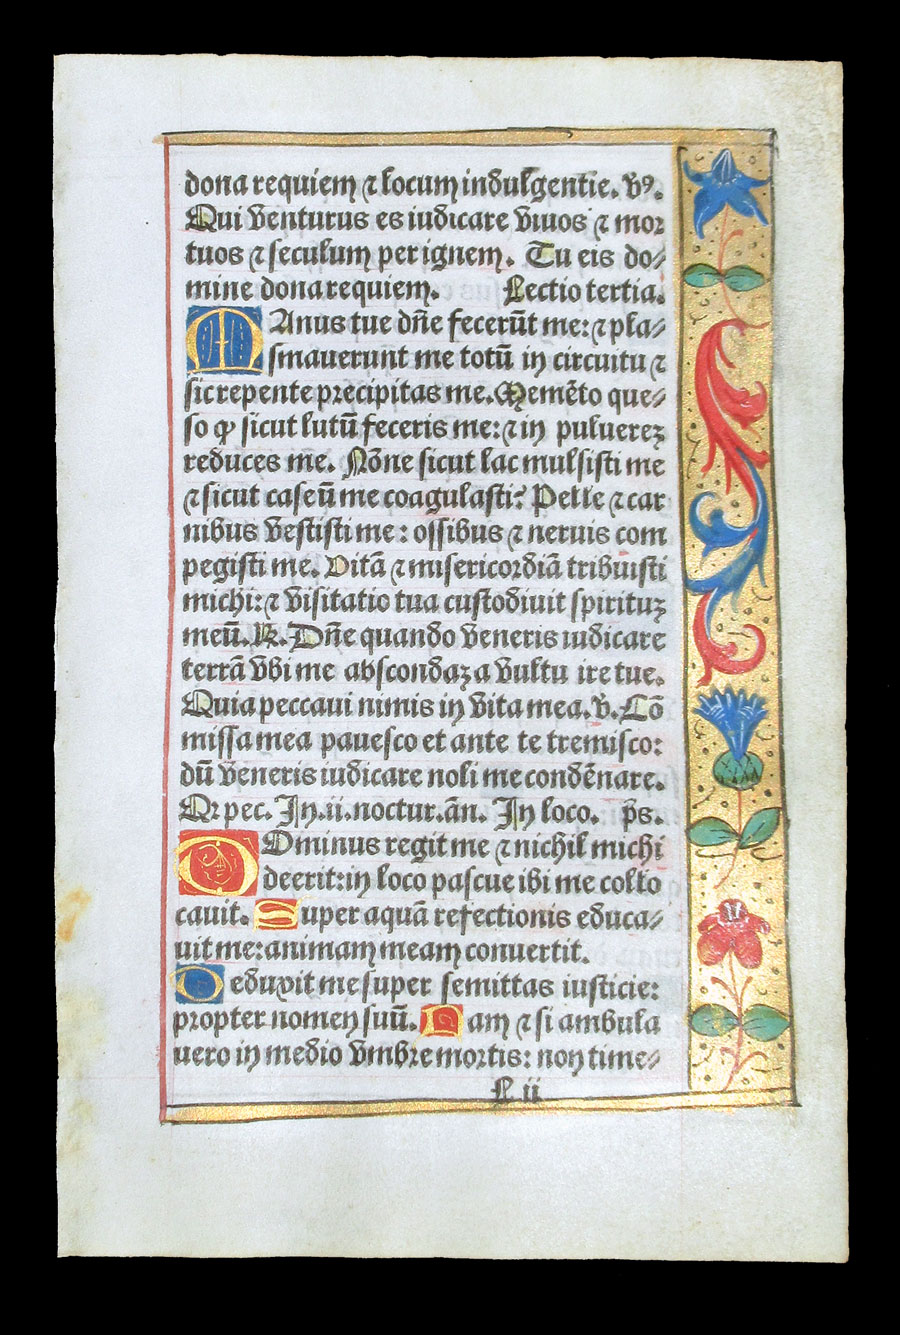 dona requiem ⁊ locum indulgentie. v̄ꝰ.
Qui venturus es iudicare viuos ⁊ mor
tuos ⁊ seculum per ignem. Tu eis do⸗
mine dona requiem. Lectio tertia.
MAnus tue dn̄e fecerūt me: ⁊ pla⸗
smauerunt me totū in circuitu ⁊
sic repente precipitas me. Memēto que⸗
so ꝙ sicut lutū feceris me: ⁊ in puluereꝫ
reduces me. Nōne sicut lac mulsisti me
⁊ sicut caseū me coagulasti? Pelle ⁊ car
nibus vestisti me: ossibus ⁊ neruis com
pegisti me. Vitā ⁊ misericordiā tribuisti
michi: ⁊ visitatio tua custodiuit spirituꝫ
meū. ℟. Dn̄e quando veneris iudicare
terrā vbi me abscondaꝫ a vultu ire tue.
Quia peccaui nimis in vita mea. v̄. Cō
missa mea pauesco et ante te tremisco:
dū veneris iudicare noli me condēnare.
Qꝛ pec. In .ii. noctur. an̄. In loco. p̄s.
DOminus regit me ⁊ nichil michi
deerit: in loco pascue ibi me collo
cauit. Super aquā refectionis educa⸗
uit me: animam meam conuertit.
Deduxit me super semittas iusticie:
propter nomen suū. Nam ⁊ si ambula
uero in medio vmbre mortis: non time⸗
L ii